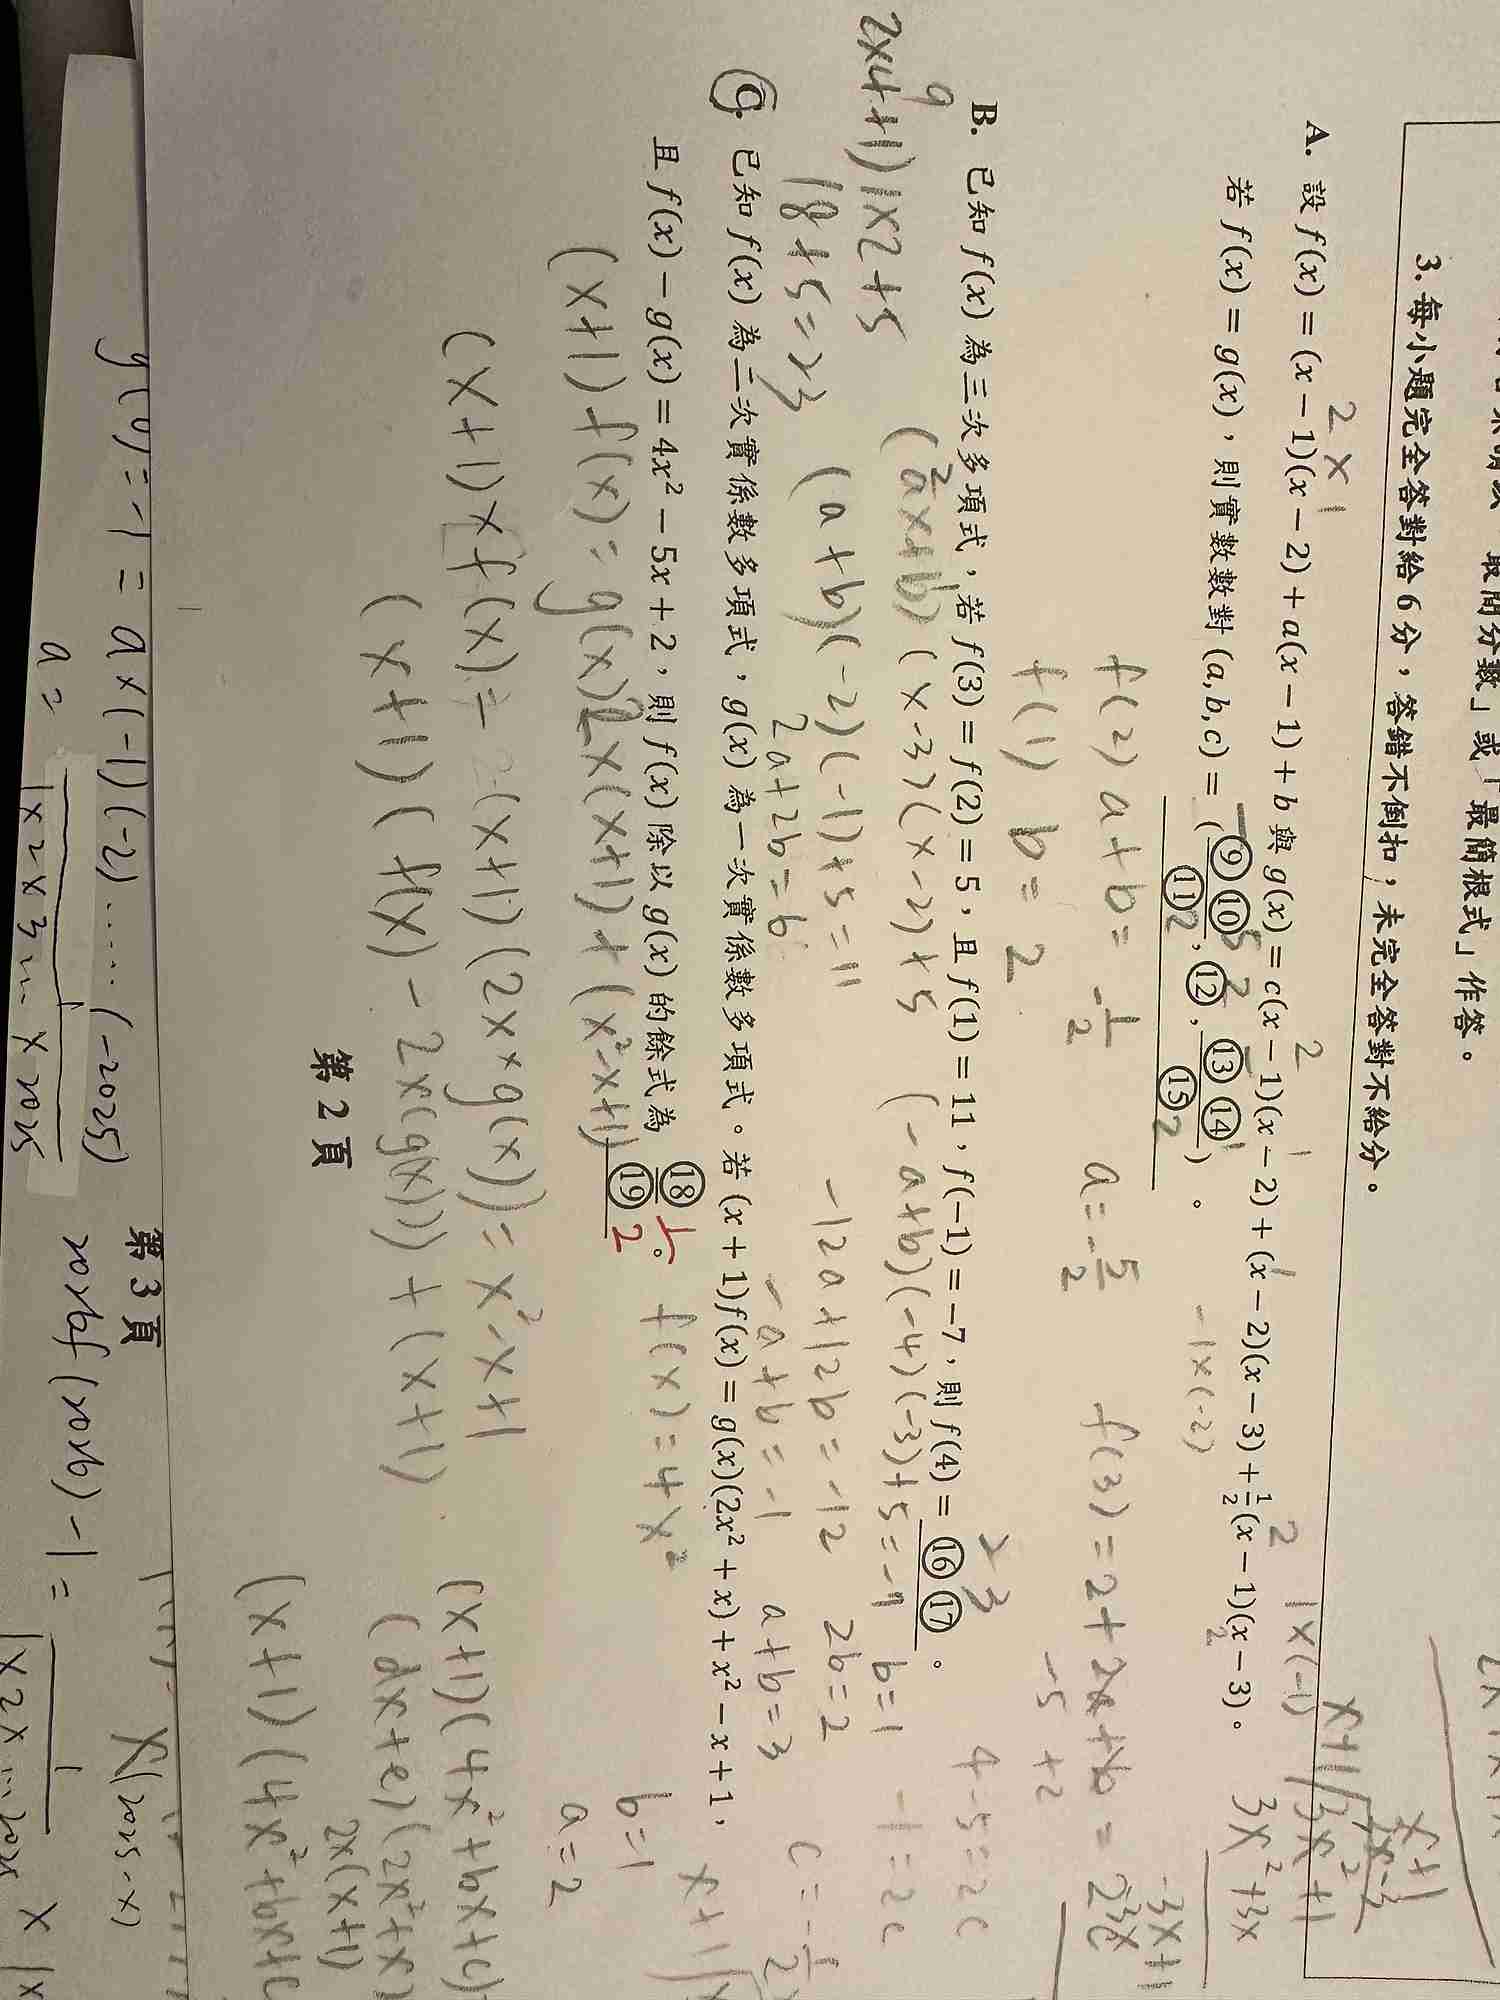 3. 每小題完全答對給 6 分，答錯不倒扣，未完全答對不給分。
A. 設 f(x) = (x − 1)(x − 2) + a(x − 1) + b 與 g(x) = c(x − 1)(x − 2) + (x − 2)(x − 3) + 1/2(x − 1)(x − 3)。
若 f(x) = g(x)，則實數數對 (a, b, c) = (⑨⑩/⑪, ⑫, ⑬⑭/⑮)。
-5 2 2 -1 2
-1×(-2)
f(2) a+b= -1/2 a=-5/2 f(3)=2+2a+b=
f(1) b=2
-5 +2
B. 已知 f(x) 為三次多項式，若 f(3) = f(2) = 5，且 f(1) = 11，f(−1) = −7，則 f(4) = ⑯⑰。
23
(ax+b)(x-3)(x-2)+5
(-a+b)(-4)(-3)+5=-7 b=1
(2×4+1)1×2+5
9
18+5=23
(a+b)(-2)(-1)+5=11
-12a+12b=-12 2b=2
2a+2b=6
-a+b=-1 a+b=3
4-5=2c
-1=2c
c=-1/2
b=1
a=2
C. 已知 f(x) 為二次實係數多項式，g(x) 為一次實係數多項式。若 (x + 1)f(x) = g(x)(2x² + x) + x² − x + 1，
且 f(x) − g(x) = 4x² − 5x + 2，則 f(x) 除以 g(x) 的餘式為 ⑱/⑲。
1
2
f(x)=4x²
(x+1)f(x)=g(x)2x(x+1)+(x²-x+1)
(x+1)×f(x)=2(x+1)(2x×g(x))=x²-x+1
(x+1)(f(x)-2x(g(x)))+(x+1)
(x+1)(4x²+bx+c)
(dx+e)(2x²+x)
2x(x+1)
(x+1)(4x²+bx+c
x+1
3x²+1
3x²+3x
-3x+1
第 2 頁
第 3 頁
g(0)=-1=a×(-1)(-2)……(-2025)
a=
1×2×3…×2025
2026f(2026)-1=
1×2×…2025
(2025-x)